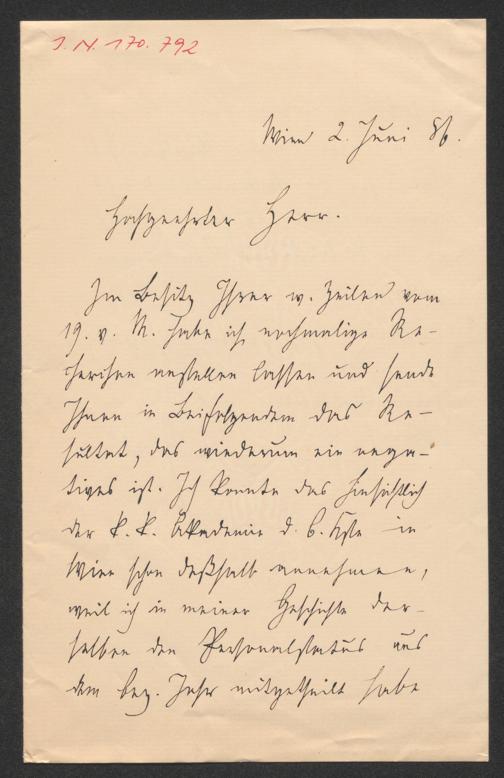 J. N. 170.792
Wien 2. Juni 86.
Hochgeehrter Herr.
Im Besitz Ihrer w. Zeilen vom
19. v. M. habe ich nochmalige Re-
cherchen anstellen lassen und sende
Ihnen in Beifolgendem das Re-
sultat, das wiederum ein nega-
tives ist. Ich konnte das hinsichtlich
der k. k. Akademie d. b. Kste in
Wien schon deßhalb annehmen,
weil ich in meiner Geschichte der-
selben den Personalstatus aus
dem bez. Jahr mitgetheilt habe